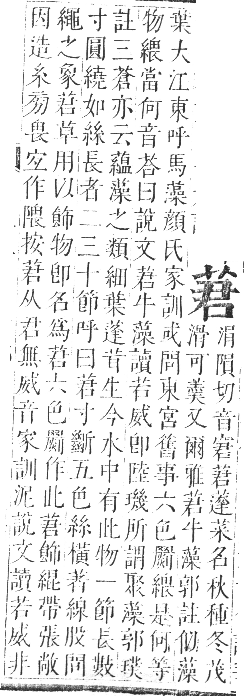 莙
涓隕切音窘莙薘菜名秋種冬茂
滑可羹又爾雅莙牛藻郭註似藻
葉大江東呼馬藻顏氏家訓或問東宮舊事六色罽䋿是何等
物䋿當何音荅曰說文莙牛藻讀若威卽陸璣所謂聚藻郭璞
註三蒼亦云蘊藻之類細葉蓬茸生今水中有此物一節長數
寸圓繞如絲長者二三十節呼曰莙寸斷五色絲橫著線股間
繩之象莙草用以飾物卽名爲莙六色罽作此莙飾緄帶張敞
因造糸旁畏空作隈按莙从君無威音家訓泥說文讀若威非